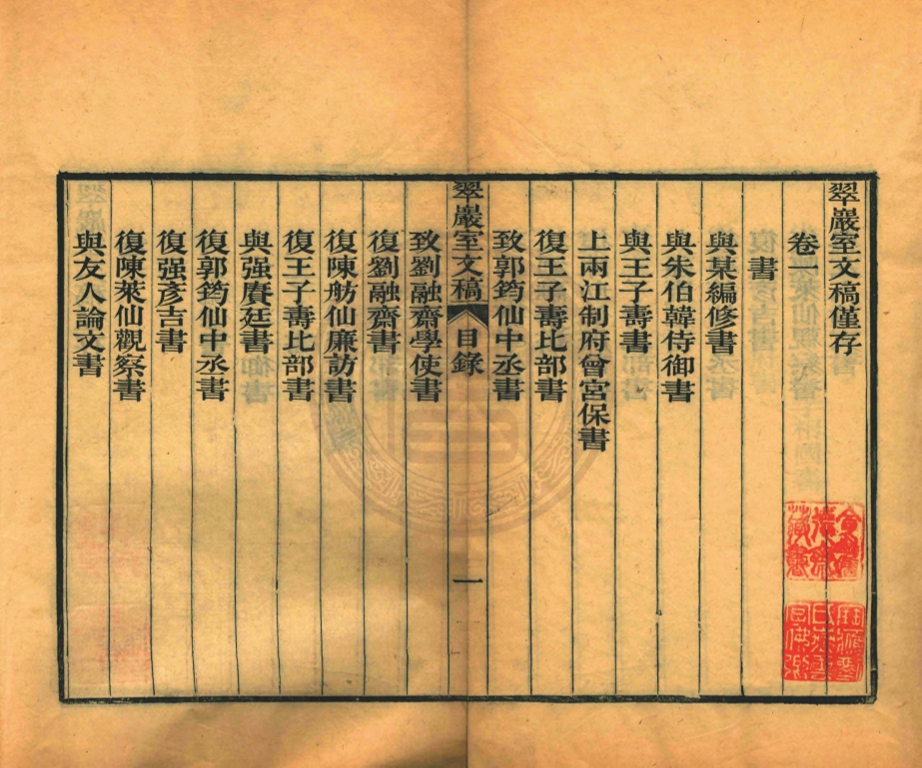 翠巖室文稿僅存
卷一
書
與某編修書
與朱伯韓侍御書
與王子壽書
上兩江制府曾宮保書
復王子壽比部書
致郭筠仙中丞書
翠巖室文稿 目錄 一
致劉融齋學使書
復劉融齋書
復陳舫仙廉訪書
復王子壽比部書
與强賡廷書
復郭筠仙中丞書
復强彥吉書
復陳萊仙觀察書
與友人論文書